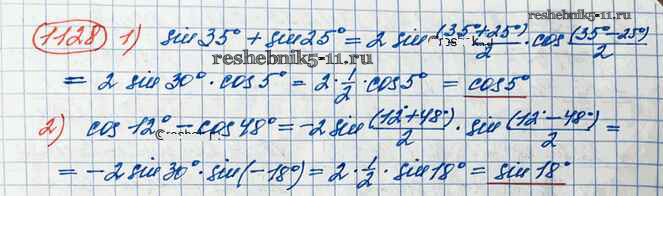 reshebnik5-11.ru
1128 1) sin 35° + sin 25° = 2 sin (35°+25°)/2 · cos (35°-25°)/2
reshebnik5-11.ru
= 2 sin 30° · cos 5° = 2 · 1/2 · cos 5° = cos 5°
2) cos 12° - cos 48° = -2 sin (12°+48°)/2 · sin (12°-48°)/2 =
= -2 sin 30° · sin(-18°) = 2 · 1/2 · sin 18° = sin 18°